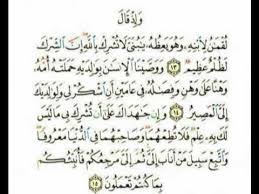 وَإِذْ قَالَ
لُقْمَٰنُ لِٱبْنِهِۦ وَهُوَ يَعِظُهُۥ يَٰبُنَىَّ لَا تُشْرِكْ بِٱللَّهِ إِنَّ ٱلشِّرْكَ
لَظُلْمٌ عَظِيمٌ ١٣ وَوَصَّيْنَا ٱلْإِنسَٰنَ بِوَٰلِدَيْهِ حَمَلَتْهُ أُمُّهُۥ
وَهْنًا عَلَىٰ وَهْنٍ وَفِصَٰلُهُۥ فِى عَامَيْنِ أَنِ ٱشْكُرْ لِى وَلِوَٰلِدَيْكَ
إِلَىَّ ٱلْمَصِيرُ ١٤ وَإِن جَٰهَدَاكَ عَلَىٰٓ أَن تُشْرِكَ بِى مَا لَيْسَ
لَكَ بِهِۦ عِلْمٌ فَلَا تُطِعْهُمَا وَصَاحِبْهُمَا فِى ٱلدُّنْيَا مَعْرُوفًا
وَٱتَّبِعْ سَبِيلَ مَنْ أَنَابَ إِلَىَّ ثُمَّ إِلَىَّ مَرْجِعُكُمْ فَأُنَبِّئُكُم
بِمَا كُنتُمْ تَعْمَلُونَ ١٥